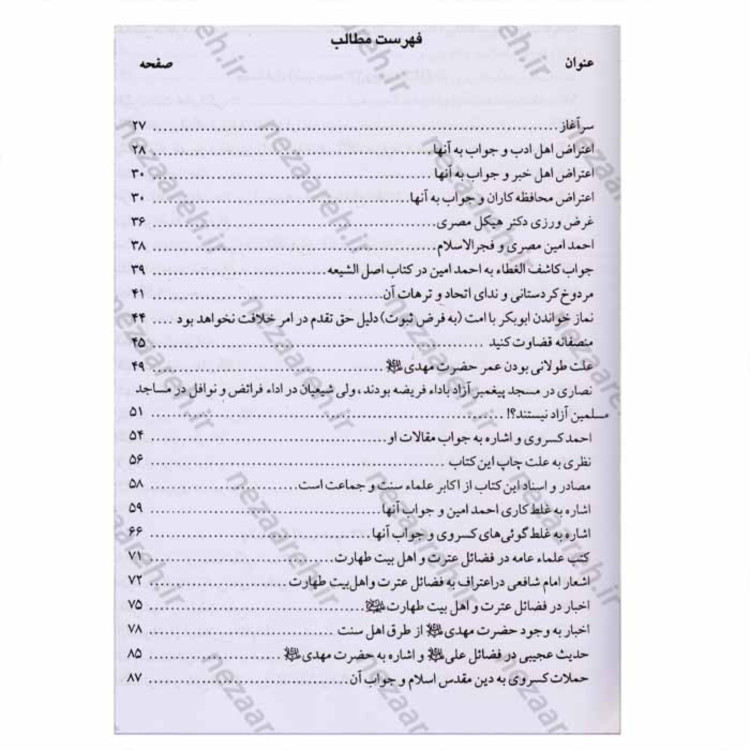 فهرست مطالب
عنوان صفحه
سرآغاز ........ ۲۷
اعتراض اهل ادب و جواب به آنها ........ ۲۸
اعتراض اهل خبر و جواب به آنها ........ ۳۰
اعتراض محافظه کاران و جواب به آنها ........ ۳۰
غرض ورزی دکتر هیکل مصری ........ ۳۶
احمد امین مصری و فجرالاسلام ........ ۳۸
جواب کاشف الغطاء به احمد امین در کتاب اصل الشیعه ........ ۳۹
مردوخ کردستانی و ندای اتحاد و ترهات آن ........ ۴۱
نماز خواندن ابوبکر با امت (به فرض ثبوت) دلیل حق تقدم در امر خلافت نخواهد بود .... ۴۴
منصفانه قضاوت کنید ........ ۴۵
علت طولانی بودن عمر حضرت مهدی ........ ۴۹
نصاری در مسجد پیغمبر آزاد باداء فریضه بودند، ولی شیعیان در اداء فرائض و نوافل در مساجد
مسلمین آزاد نیستند؟! ........ ۵۱
احمد کسروی و اشاره به جواب مقالات او ........ ۵۴
نظری به علت چاپ این کتاب ........ ۵۶
مصادر و اسناد این کتاب از اکابر علماء سنت و جماعت است ........ ۵۸
اشاره به غلط کاری احمد امین و جواب آنها ........ ۵۹
اشاره به غلط گوئی های کسروی و جواب آنها ........ ۶۶
کتب علماء عامه در فضائل عترت و اهل بیت طهارت ........ ۷۱
اشعار امام شافعی دراعتراف به فضائل عترت واهل‌بیت طهارت ........ ۷۲
اخبار در فضائل عترت و اهل بیت طهارت ........ ۷۵
اخبار به وجود حضرت مهدی از طرق اهل سنت ........ ۷۸
حدیث عجیبی در فضائل علی و اشاره به حضرت مهدی ........ ۸۵
حملات کسروی به دین مقدس اسلام و جواب آن ........ ۸۷
nezaareh.ir